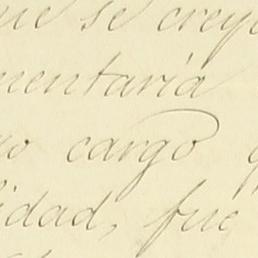 ue se creyo
mentaria
o cargo q
lidad, fue